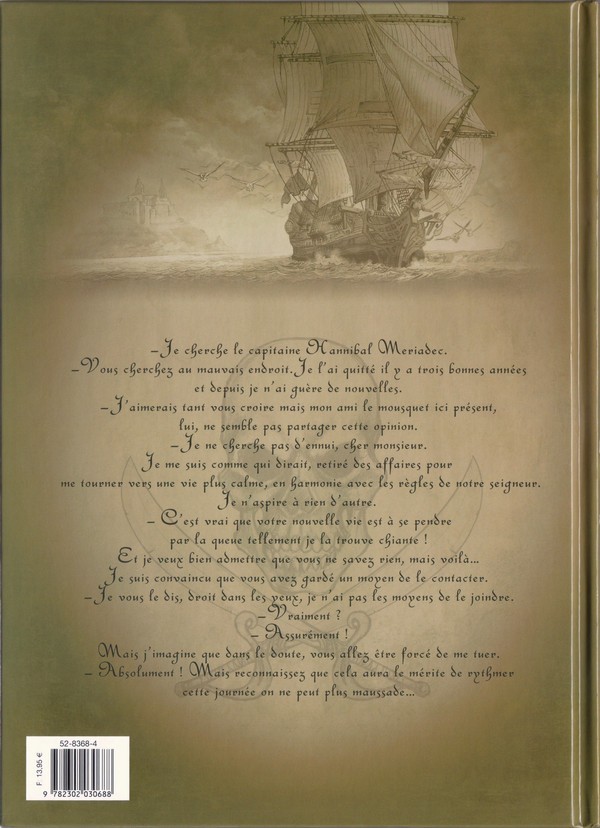 –Je cherche le capitaine Hannibal Meriadec.
–Vous cherchez au mauvais endroit. Je l'ai quitté il y a trois bonnes années
et depuis je n'ai guère de nouvelles.
–J'aimerais tant vous croire mais mon ami le mousquet ici présent,
lui, ne semble pas partager cette opinion.
–Je ne cherche pas d'ennui, cher monsieur.
Je me suis comme qui dirait, retiré des affaires pour
me tourner vers une vie plus calme, en harmonie avec les règles de notre seigneur.
Je n'aspire à rien d'autre.
– C'est vrai que votre nouvelle vie est à se pendre
par la queue tellement je la trouve chiante !
Et je veux bien admettre que vous ne savez rien, mais voilà...
Je suis convaincu que vous avez gardé un moyen de le contacter.
–Je vous le dis, droit dans les yeux, je n'ai pas les moyens de le joindre.
–Vraiment ?
– Assurément !
Mais j'imagine que dans le doute, vous allez être forcé de me tuer.
– Absolument ! Mais reconnaissez que cela aura le mérite de rythmer
cette journée on ne peut plus maussade...
52-8368-4
F 13,95 €
9 782302 030688